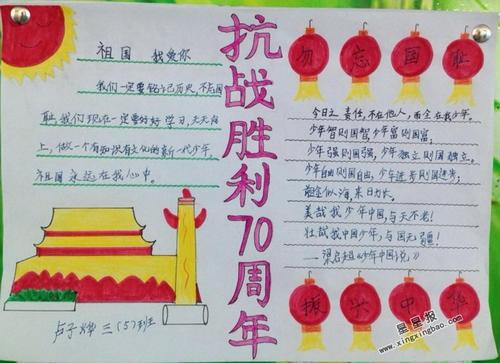 祖国 我爱你
我们一定要铭记历史,不忘国
耻,我们现在一定要好好学习,天天向
上,做一个有知识有文化的新一代少年,
祖国永远在我心中。
三(5)班
抗战胜利70周年
勿忘国耻
今日之责任,不在他人,而全在我少年。
少年智则国智少年富则国富,
少年强则国强,少年独立则国独立。
少年自由则国自由,少年进步则国进步;
似海,来日方长。
美哉我少年中国,与天不老!
壮哉我中国少年,与国无疆!
——梁启超《少年中国说》
振兴中华
星星报
www.xingxingbao.com